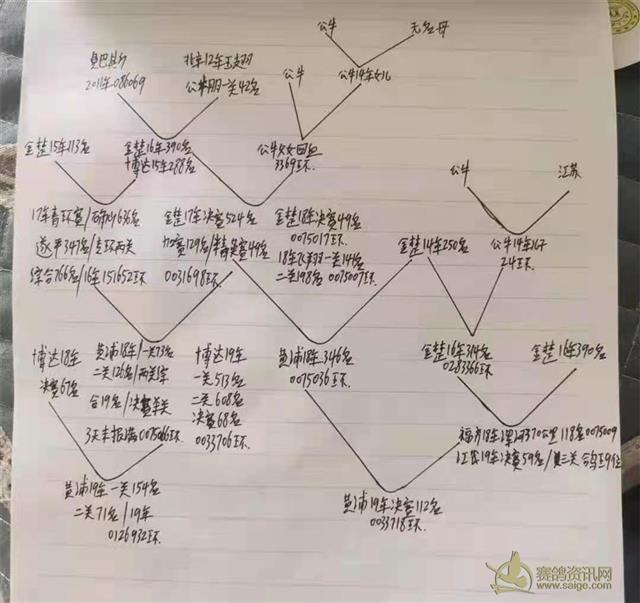 公牛
无名母
奥巴其尔
2011年086069
北京12年五起翔
公牛朋一关42名
公牛
公牛14年女儿
金楚15年113名
金楚16年390名
博达15年288名
公牛父女回血
3369环.
公牛
江苏
17年喜环赛/636名
遂平347名/喜环两关
综合766名/16年151652环
金楚17年决赛524名
加赛129名/49名
0031698环
金楚18年决赛49名
0075017环.
18年飞翔一关14名
二关198名 0075007环.
金楚14年250名
公牛14年167
24环.
博达18年
决赛67名
黄浦18年/一关73名
二关126名/两关综
合19名/决赛关
3天未报满0075066环
博达19年
一关513名
二关608名
决赛68名
0033706环.
黄浦18年346名
0075036环.
金楚16年314名
0283366环
金楚16年390名
福市18年漯河370公里118名0075009
江民19年决赛59名/三关鸽王99位
黄浦19年一关154名
二关71名/19年
0126932环.
黄浦19年决赛112名
0033718环.
赛鸽资讯网
www.saige.com